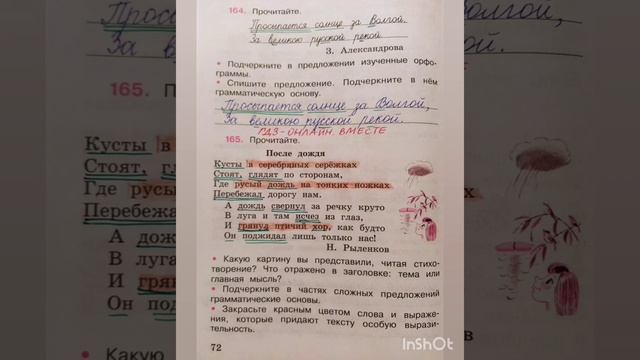 164. Прочитайте.
Просыпается солнце за Волгой,
За великою русской рекой.
З. Александрова
• Подчеркните в предложении изученные орфо-
граммы.
• Спишите предложение. Подчеркните в нём
грамматическую основу.
Просыпается солнце за Волгой,
За великою русской рекой.
ГДЗ-ОНЛАЙН ВМЕСТЕ
165. Прочитайте.
После дождя
Кусты в серебряных серёжках
Стоят, глядят по сторонам,
Где русый дождь на тонких ножках
Перебежал дорогу нам.
А дождь свернул за речку круто
В луга и там исчез из глаз,
И грянул птичий хор, как будто
Он поджидал лишь только нас!
Н. Рыленков
• Какую картину вы представили, читая стихо-
творение? Что отражено в заголовке: тема или
главная мысль?
• Подчеркните в частях сложных предложений
грамматические основы.
• Закрасьте красным цветом слова и выраже-
ния, которые придают тексту особую вырази-
тельность.
72
InShOt